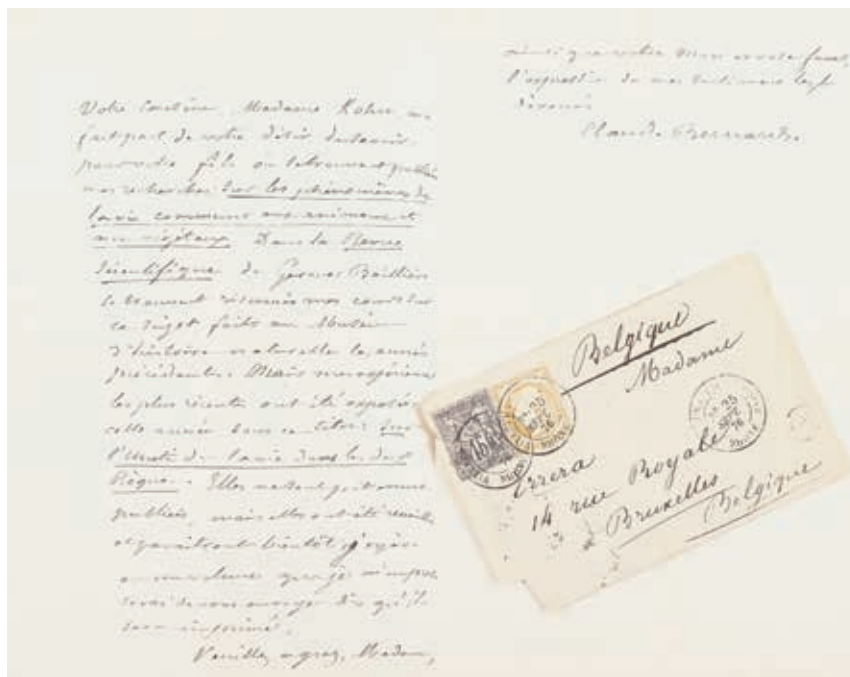 Votre cousine, Madame Kohn me
fait part de votre désir d'avoir
pour votre fils où se trouvent publiées
mes recherches sur les phénomènes de
la vie communs aux animaux et
aux végétaux. Dans la Revue
Scientifique de Germer Baillière
se trouvent résumés mes cours sur
ce sujet faits au Muséum
d'histoire naturelle les années
précédentes. Mais mes expériences
les plus récentes ont été exposées
cette année sous ce titre: sur
l'Unité de la vie dans les deux
Règnes. Elles ne sont pas encore
publiées, mais elles ont été
et paraîtront bientôt j'espère
en un volume que je m'empres
serai de vous envoyer dès qu'il
sera imprimé.
Veuillez agréer, Madame,
ainsi que votre
l'expression de mes sentiments les
dévoués
Claude Bernard
Belgique
Madame
Errera
14 rue Royale
à Bruxelles
Belgique
15
25
SEPT.
76
25
SEPT.
76